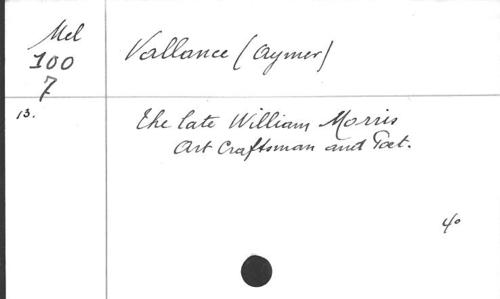 Mel
100
7
Vallance (Aymer)
13.
The late William Morris
Art Craftsman and Poet.
4o